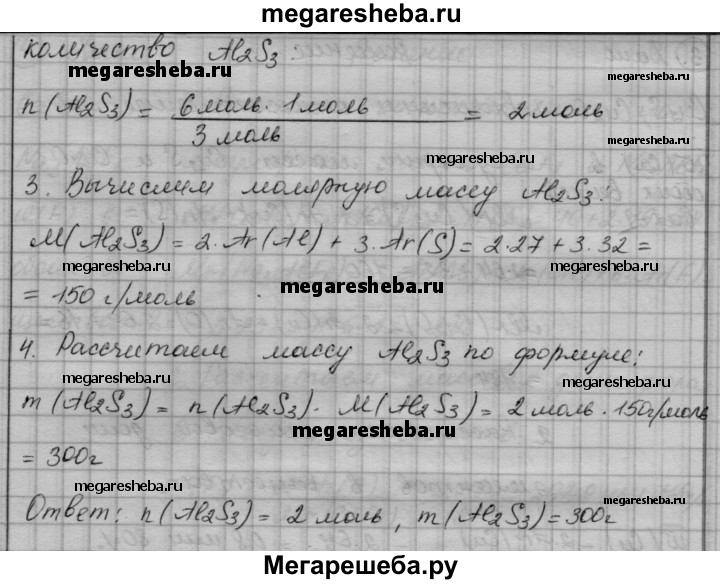 megaresheba.ru
количество Al2S3:
megaresheba.ru
megaresheba.ru
n(Al2S3) = 6 моль · 1 моль / 3 моль = 2 моль
megaresheba.ru
3. Вычислим молярную массу Al2S3:
megaresheba.ru
M(Al2S3) = 2·Ar(Al) + 3·Ar(S) = 2·27 + 3·32 =
megaresheba.ru
megaresheba.ru
= 150 г/моль
4. Рассчитаем массу Al2S3 по формуле:
megaresheba.ru
megaresheba.ru
m(Al2S3) = n(Al2S3)· M(Al2S3) = 2 моль · 150г/моль
megaresheba.ru
= 300г
megaresheba.ru
megaresheba.ru
Ответ: n(Al2S3) = 2 моль, m(Al2S3) = 300г
Мегарешеба.ру